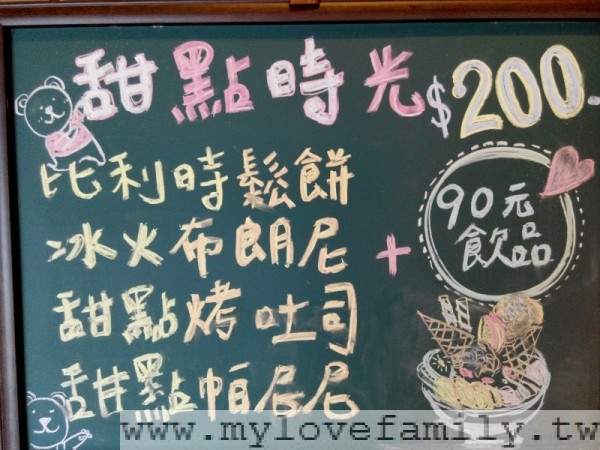 甜點時光 $200.
比利時鬆餅
冰火布朗尼
甜點烤吐司
甜點帕尼尼
+
90元
飲品
www.mylovefamily.tw